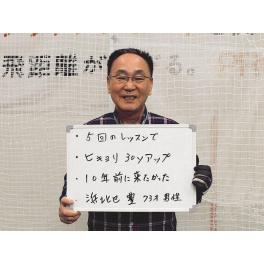 飛距離が　　る。
・5回のレッスンで
・ヒキョリ 30yアップ
・10年前に来たかった
・浜北区 豊 73才 男性